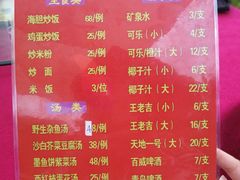 主食类
海胆炒饭 68/例
鸡蛋炒饭 25/例
炒米粉 25/例
炒面 25/例
米饭 3/位
汤类
野生杂鱼汤 48/例
沙白芥菜豆腐汤 38/例
墨鱼饼紫菜汤 38/例
西红柿蛋花汤 25/例
矿泉水 3/支
可乐(小) 4/支
可乐/橙汁(大) 12/支
椰子汁(小) 6/支
椰子汁(大) 22/支
王老吉(小) 7/支
王老吉(大) 12/支
天地一号(大) 20/支
百威啤酒 12/支
青岛啤酒